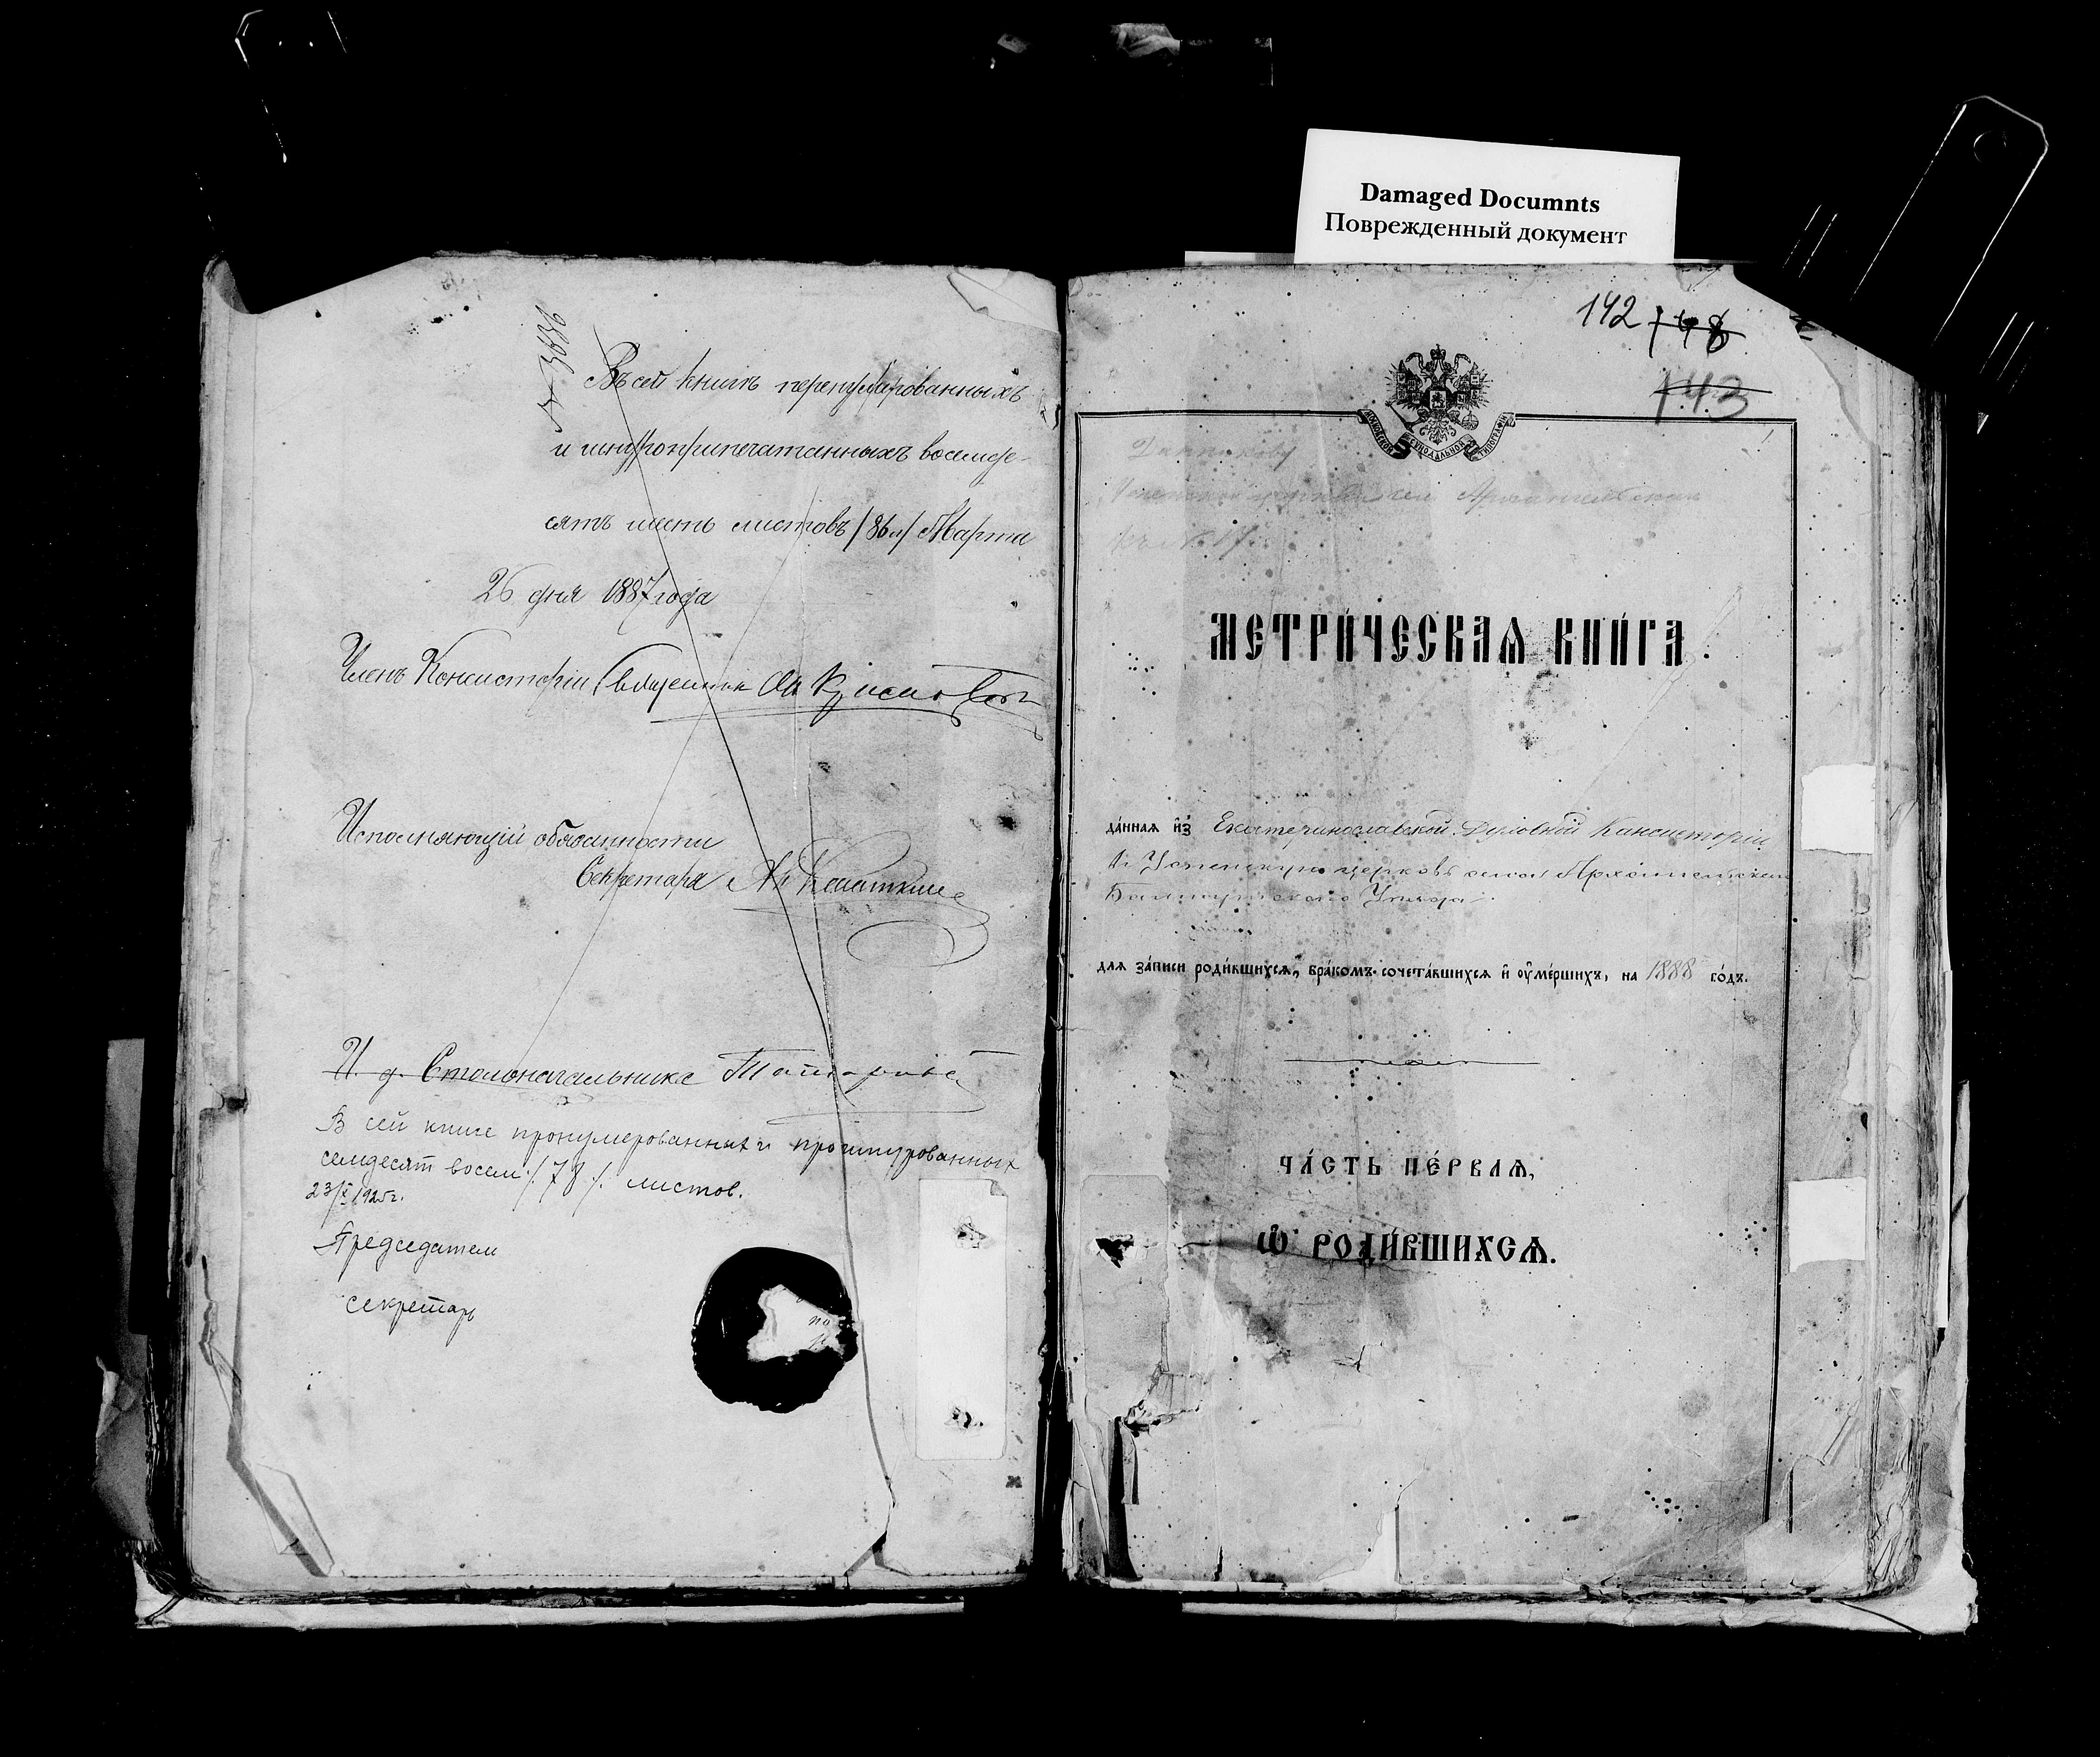 Damaged Documnts
Поврежденный документ
№ 3686
Въ сей книгѣ перенумерованныхъ
и шнуроприпечатанныхъ восемде-
сятъ шесть листовъ /86 л/ Марта
26 дня 1887 года
Членъ Консисторіи, Священник
Исполняющій обязанности
Секретаря
И. д. Столоначальника
В сей книге пронумерованных и прошнурованных
семдесят восем /.78./ листов.
23/X 1925 г.
Председатель
секретарь
142 148
143
МОСКОВСКОЙ СѴНОДАЛЬНОЙ ТИПОГРАФІИ
Архангельскаго
МЕТРИ́ЧЕСКАѦ КНИ́ГА.
да́ннаѧ и҆з̾ Екатеринославской Духовной Консисторіи
въ Успенскую церковь села Архангельскаго
Бахмутскаго Уѣзда
длѧ за́писи роди́вшихсѧ, бра́комъ-сочета́вшихсѧ и҆ ᲂу҆ме́ршихъ, на 1888 го́дъ.
ЧА́СТЬ ПЕ́РВАѦ,
Ѡ҆ РОДИ́ВШИХСѦ.